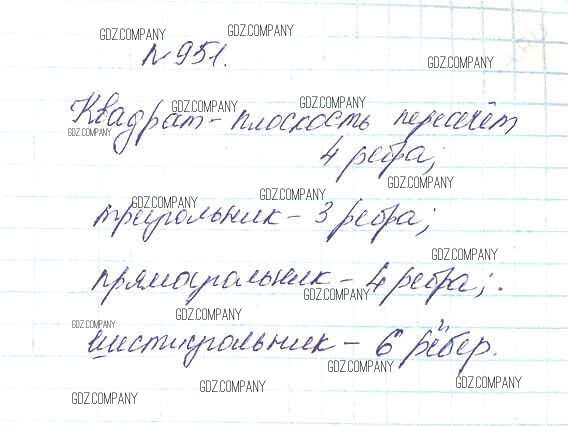 GDZ.COMPANY GDZ.COMPANY
№ 951. GDZ.COMPANY
GDZ.COMPANY GDZ.COMPANY
Квадрат - плоскость пересечёт
GDZ.COMPANY
4 ребра;
GDZ.COMPANY
GDZ.COMPANY GDZ.COMPANY
треугольник - 3 ребра;
GDZ.COMPANY
прямоугольник - 4 ребра;
GDZ.COMPANY
GDZ.COMPANY GDZ.COMPANY
шестиугольник - 6 рёбер.
GDZ.COMPANY
GDZ.COMPANY GDZ.COMPANY GDZ.COMPANY